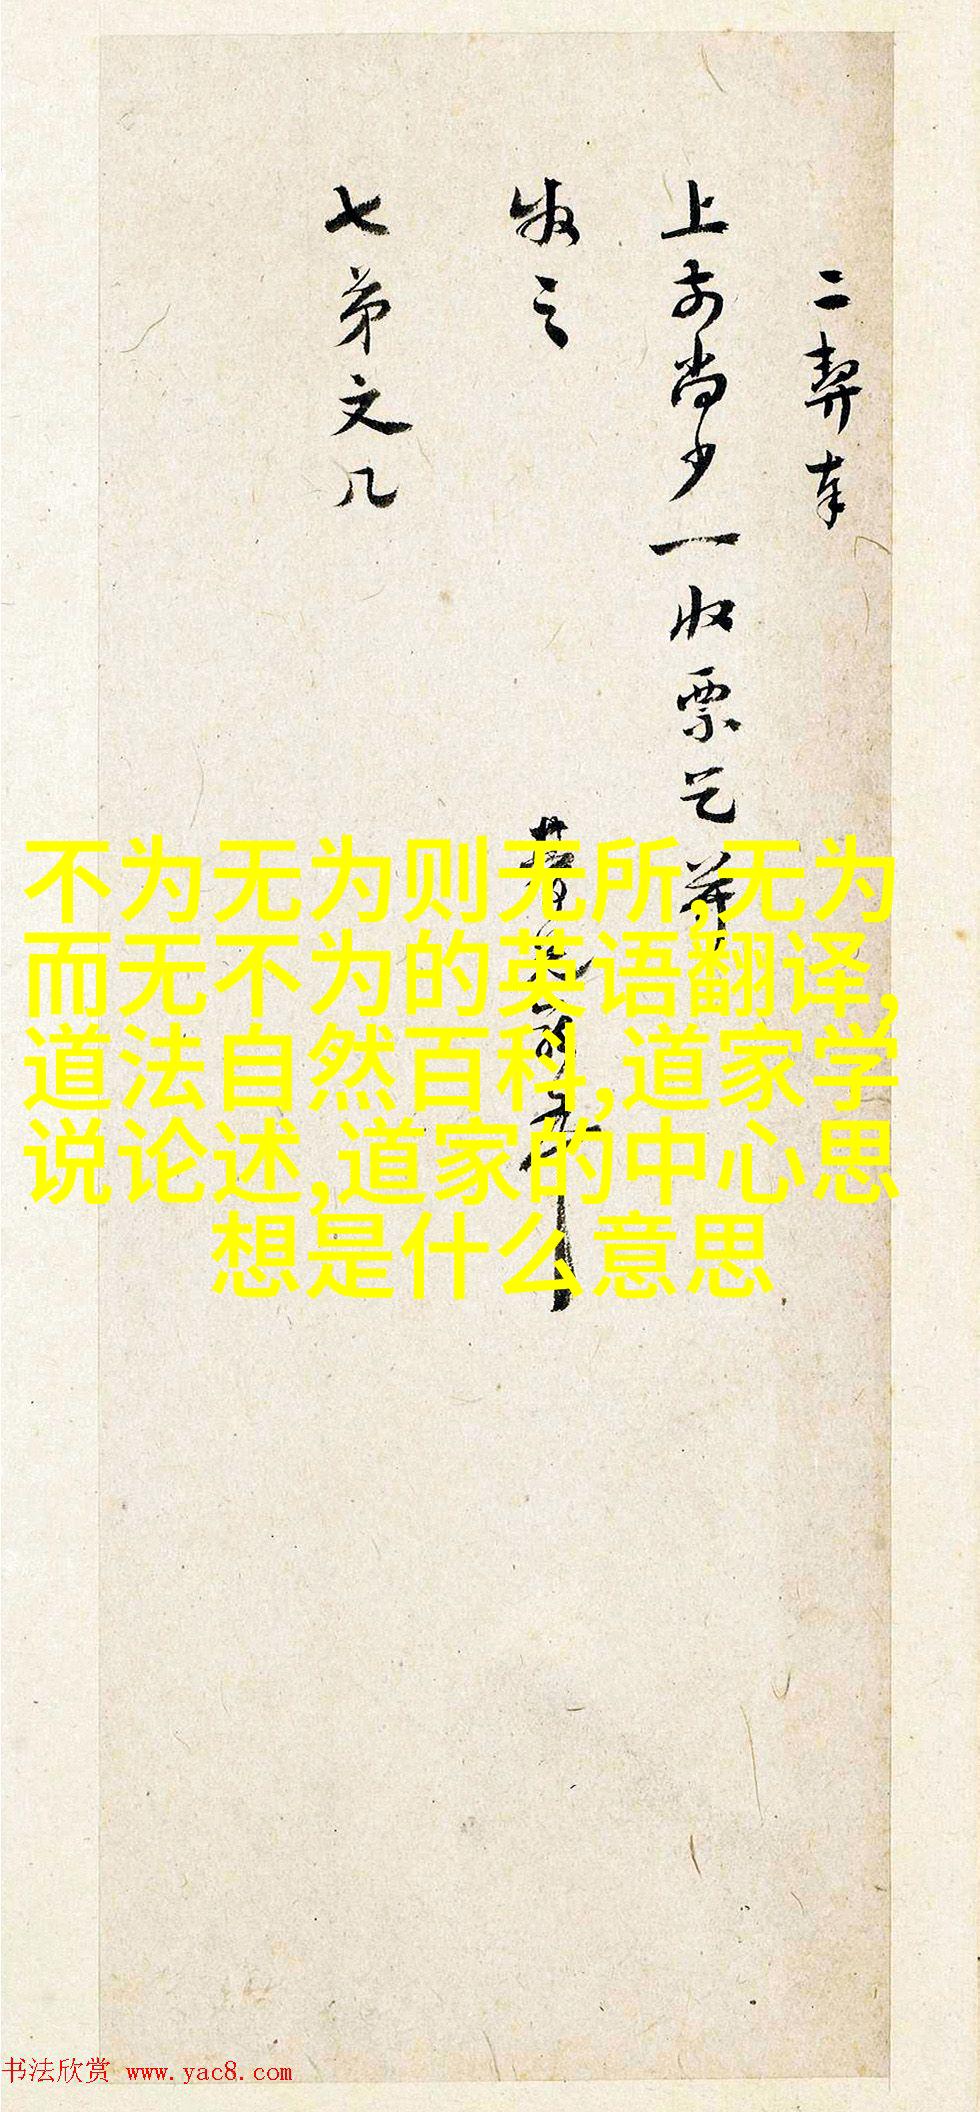 二契奉
上亦尚少一收票乞并
收之
七弟文几
不为无为则无所,无为
而无不为的英语翻译,
道法自然百科,道家学
说论述,道家的中心思
想是什么意思
书法欣赏 www.yac8.com